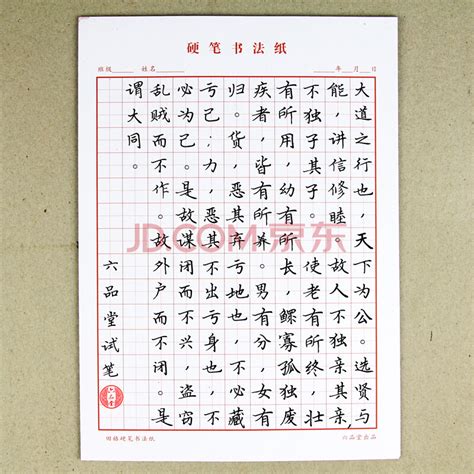 硬笔书法纸
班级 姓名 年 月 日
大道之行也，天下为公。选贤与
能，讲信修睦。故人不独亲其亲，
不独子其子。使老有所终，壮
有所用，幼有所长，鳏寡孤独废
疾者，皆有所养。男有分，女有
归。货，恶其弃亏地也，不必藏
亏己；力，恶其不出亏身也，不
必为己。是故谋闭而不兴，盗窃
乱贼而不作。故外户而不闭。是
谓大同。
六品堂试笔
六品堂
JD.COM 京东
田格硬笔书法纸
六品堂出品